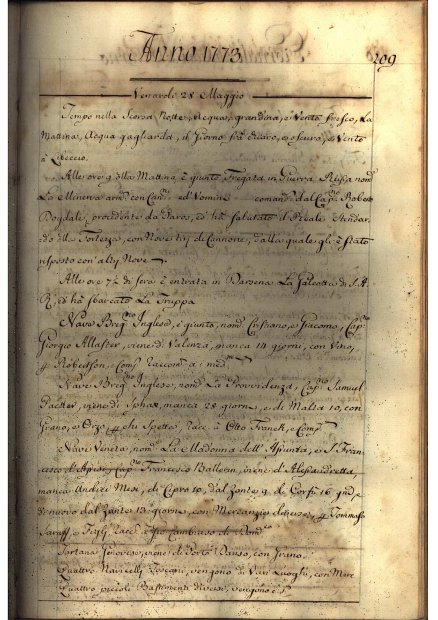 Anno 1773
209
Venardì 28 Maggio
Tempo nella Scorsa Notte, Acqua, grandina, e Vento fresco, La
Mattina, Acqua gagliarda, il Giorno frà chiaro, e oscuro, e Vento
a Libeccio.
Alle ore 9 della Mattina è giunto Fregata in Guerra Russa nom.
La Minerva arm. con Can. ed Uomini comand. dal Cap. Robert
Dugdale, procedente da Paros, ed ha salutato il Reale Stendar-
do e la Fortezza, con Nove tiri di Cannone, dalla quale gli è stato
risposto con altri Nove
Alle ore 7½ di sera è entrata in Darsena La Galeotta di S. A.
R. ed ha sbarcato La Truppa
Nave Breg. Inglese, è giunto, nom. Cristiano, e Giacomo, Cap.
Giorgio Allaster, viene di Valenza, manca 14 giorni, con Vino,
p Robertson, e Comp. Raccom. a med.
Nave Breg. Inglese, nom. La Providenza, Cap. Samuel
viene di manca 28 giorni, e di Malta 10, con
Grano, e Orzo, p Racc. a Otto Franck, e Comp.
Nave Veneta, nom. La Madonna dell' e S. Fran-
cesco d' Cap. Francesco Ballovin, viene d' Alessandretta
manca Andici Mesi, di Cipro 10, dal Zante 9, da Corfù 16 gni, e
di nuovo dal Zante 13 giorni, con Mercanzie diverse, p Tommaso
e Figli, Racc. a di Dom.
Tartana Genovese, viene di Porto Danzo, con Grano
Quattro Navicelli Toscani, vengono di Vari Luoghi, con Merc.
Quattro piccoli Bastimenti diversi, vengono